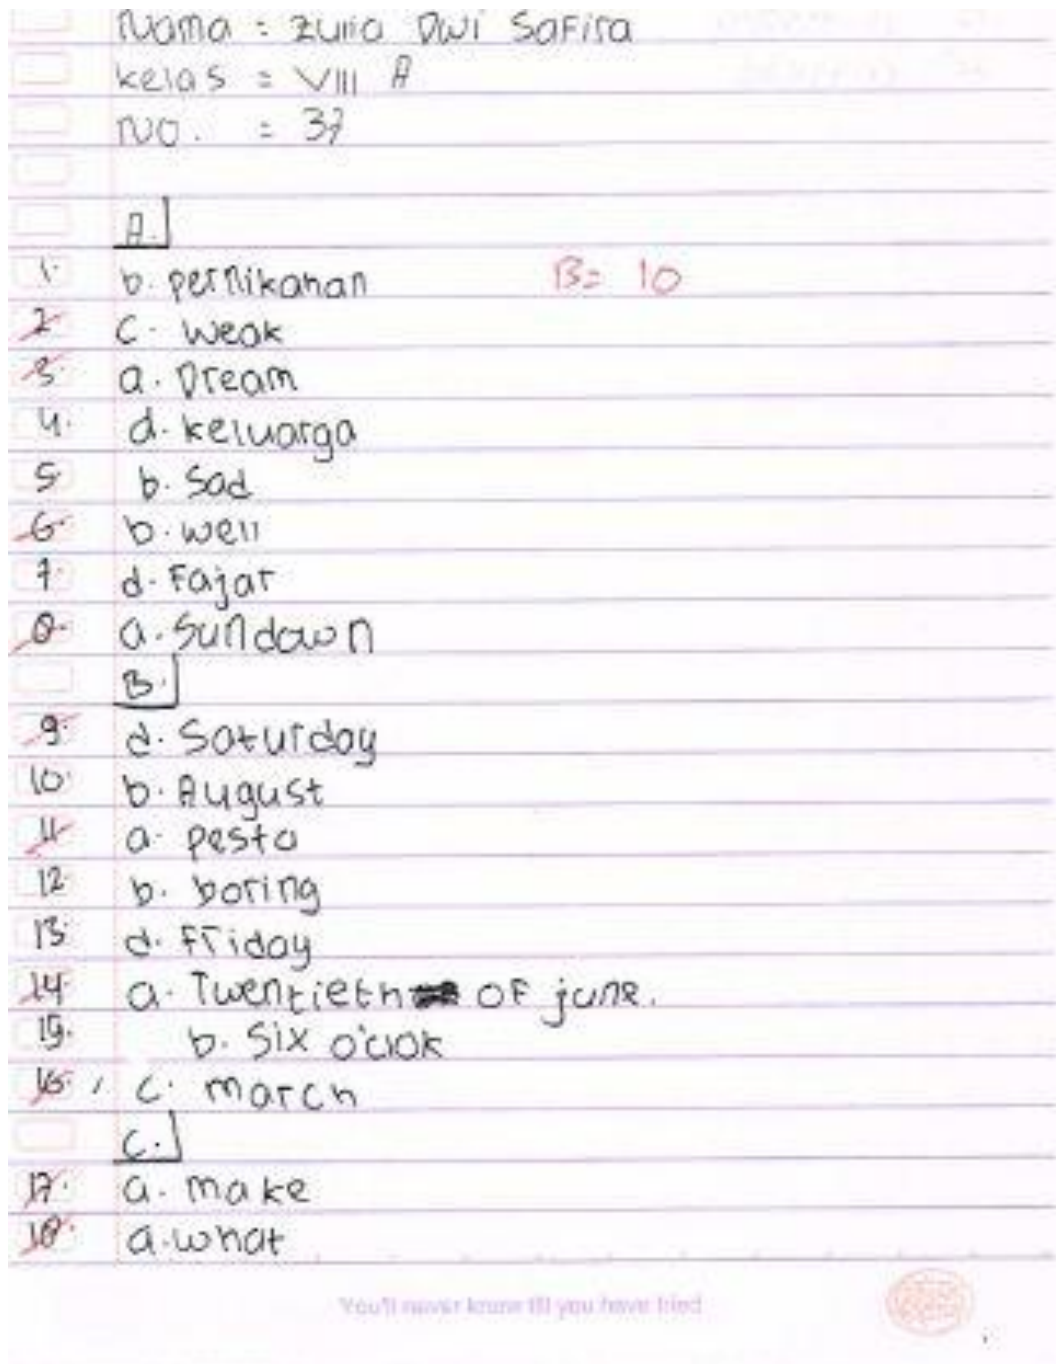 Nama : Zulia Dwi Safira
kelas = VIII A
No. = 37
A.
1. b. pernikahan B= 10
2. c. weak
3. a. Dream
4. d. keluarga
5. b. Sad
6. b. well
7. d. Fajar
8. a. Sundown
B.
9. d. Saturday
10. b. August
11. a. pesta
12. b. boring
13. d. Friday
14. a. Twentieth OF june.
15. b. Six o'clok
16. c. march
C.
17. a. make
18. a. what
You'll never know till you have tried